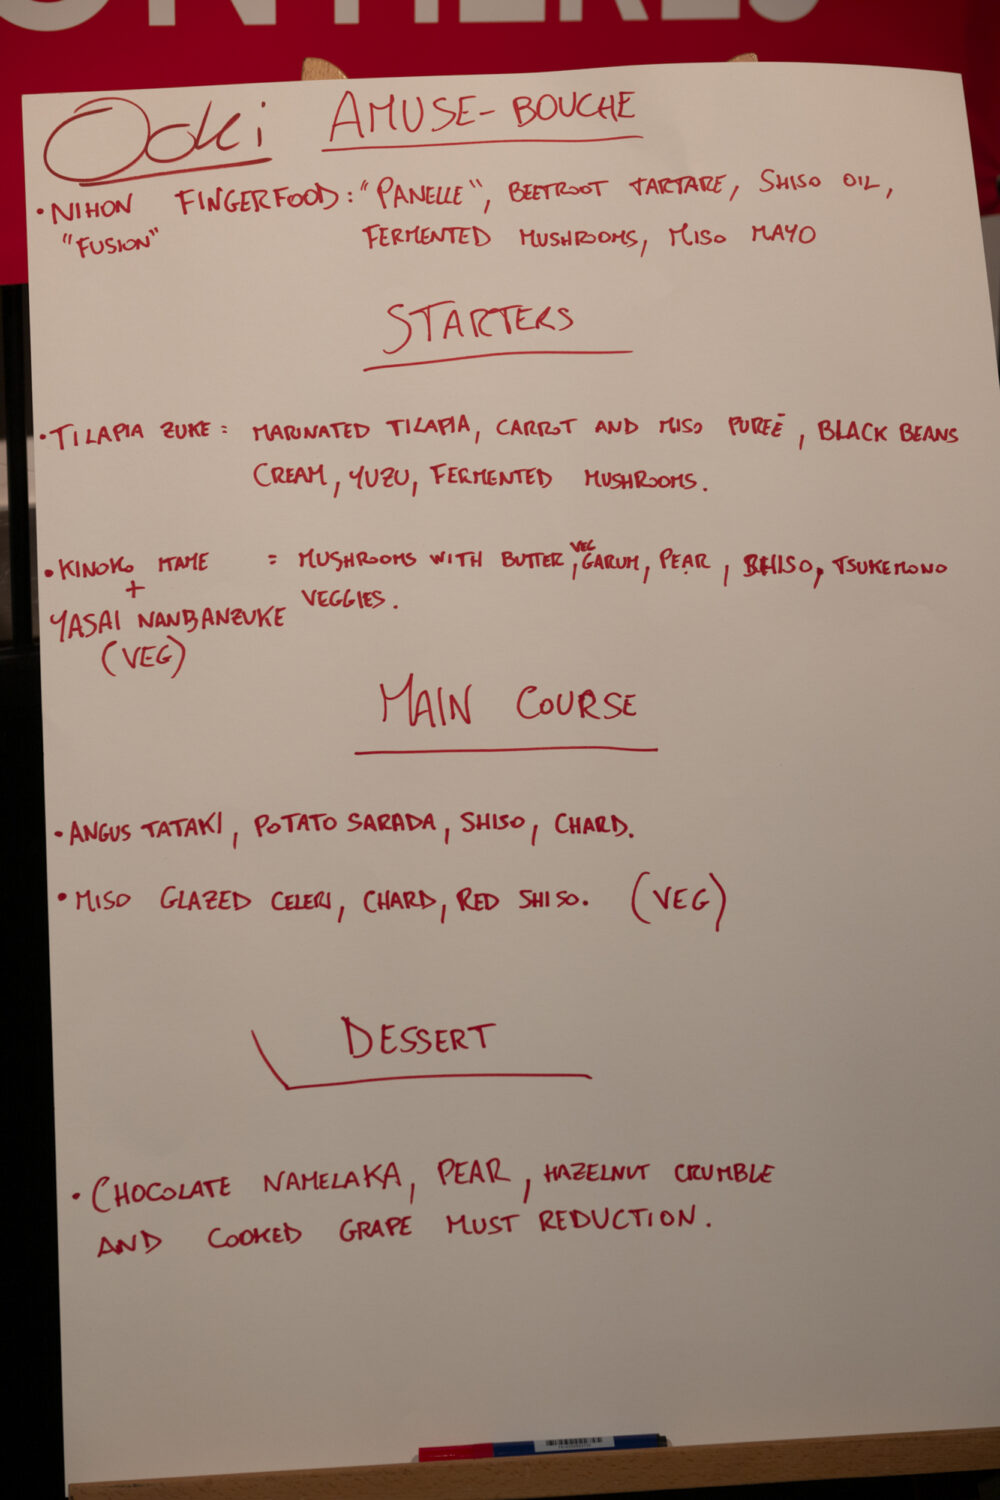 Ooki AMUSE-BOUCHE
• NIHON FINGERFOOD: "PANELLE", BEETROOT TARTARE, SHISO OIL,
"FUSION" FERMENTED MUSHROOMS, MISO MAYO
STARTERS
• TILAPIA ZUKE = MARINATED TILAPIA, CARROT AND MISO PUREÈ, BLACK BEANS
CREAM, YUZU, FERMENTED MUSHROOMS.
• KINOKO ITAME = MUSHROOMS WITH BUTTER, VEG GARUM, PEAR, SHISO, TSUKEMONO
+ VEGGIES.
YASAI NANBANZUKE
(VEG)
MAIN COURSE
• ANGUS TATAKI, POTATO SARADA, SHISO, CHARD.
• MISO GLAZED CELERI, CHARD, RED SHISO. (VEG)
DESSERT
• CHOCOLATE NAMELAKA, PEAR, HAZELNUT CRUMBLE
AND COOKED GRAPE MUST REDUCTION.